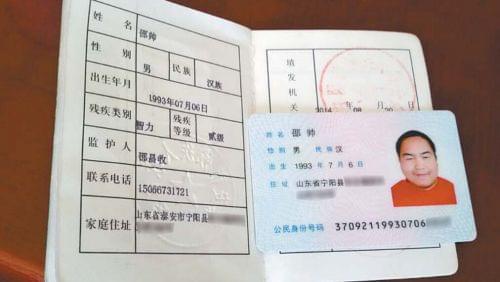 姓名 邵帅
性别 男 民族 汉族
出生年月 1993年07月06日
残疾类别 智力 残疾等级 贰级
监护人 邵昌收
联系电话 15066731721
家庭住址 山东省泰安市宁阳县
填发机关
姓名 邵帅
性别 男 民族 汉
出生 1993 年 7 月 6 日
住址 山东省宁阳县
公民身份号码 37092119930706